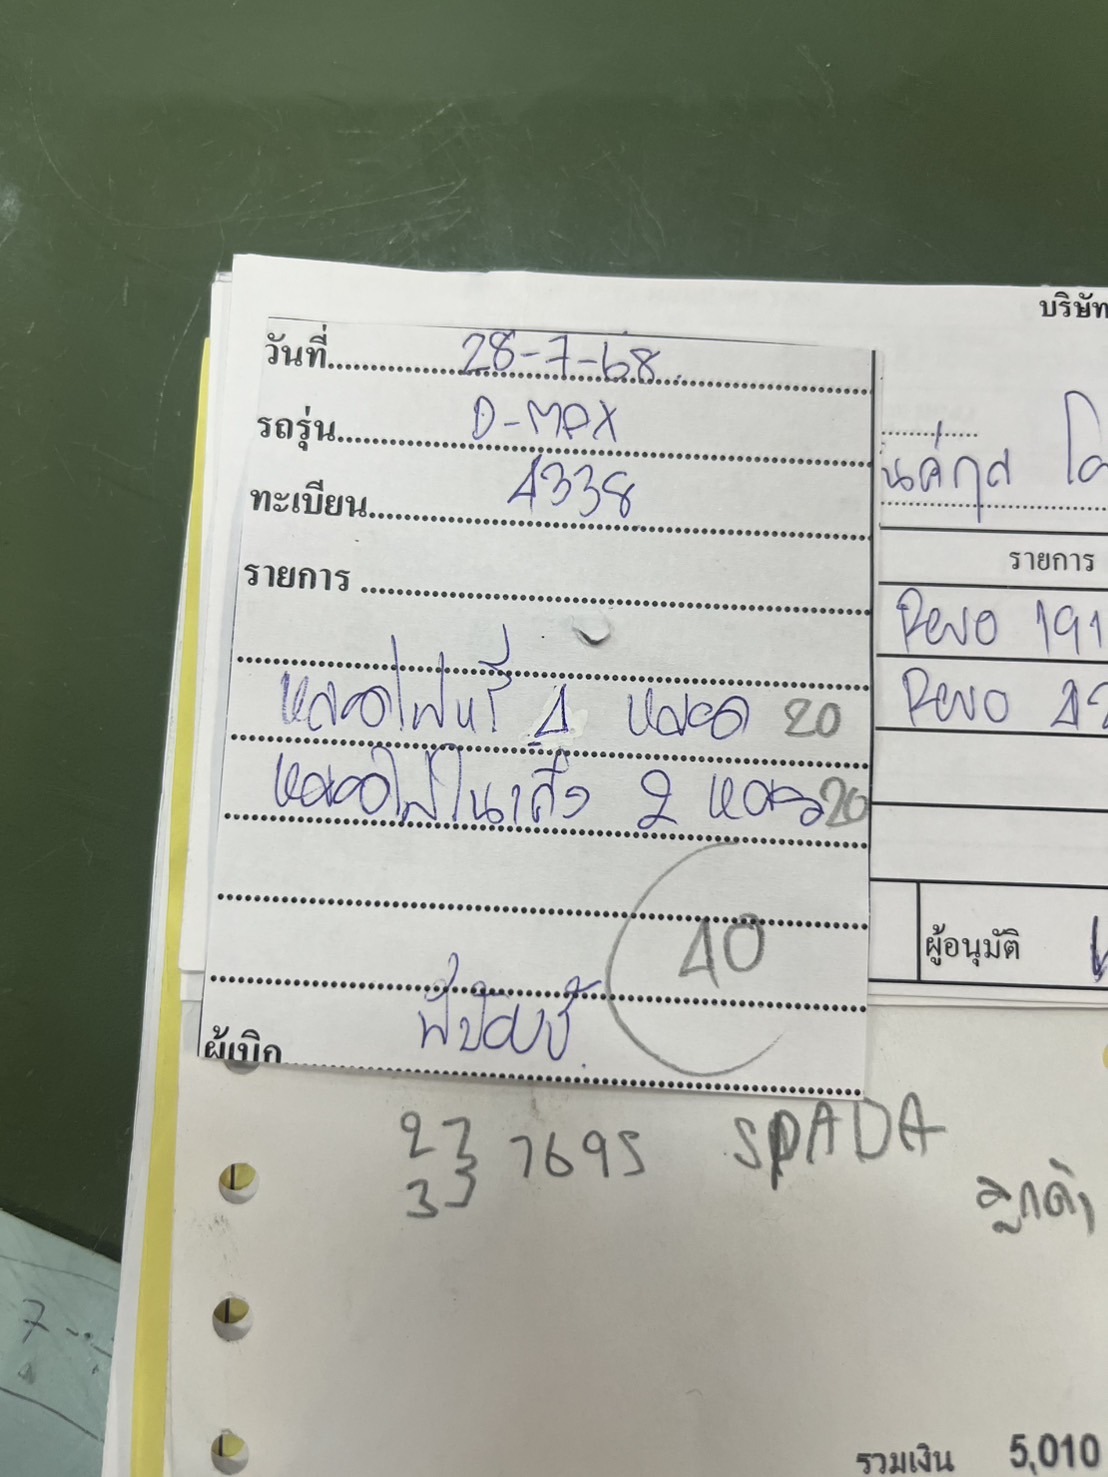 บริษัท
วันที่ 28-7-68
รถรุ่น D-MAX
ทะเบียน 4338
รายการ
หลอดไฟหรี่ 4 หลอด 20
หลอดไฟในเก๋ง 2 หลอด 20
40
ผู้เบิก
รายการ
Revo 191
Revo 42
ผู้อนุมัติ
27 7695 SPADA
33
ลูกค้า
7
รวมเงิน 5,010